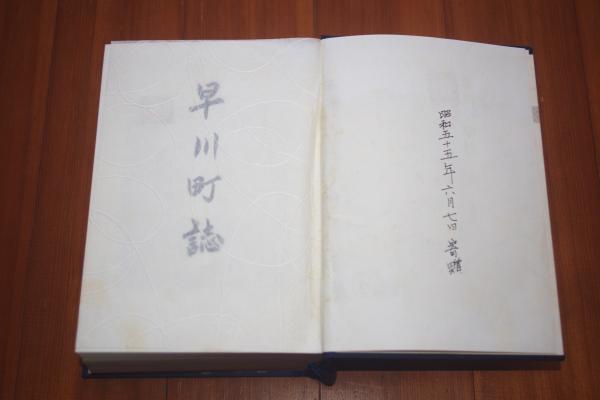 昭和五十五年六月七日 寄贈
早川町誌